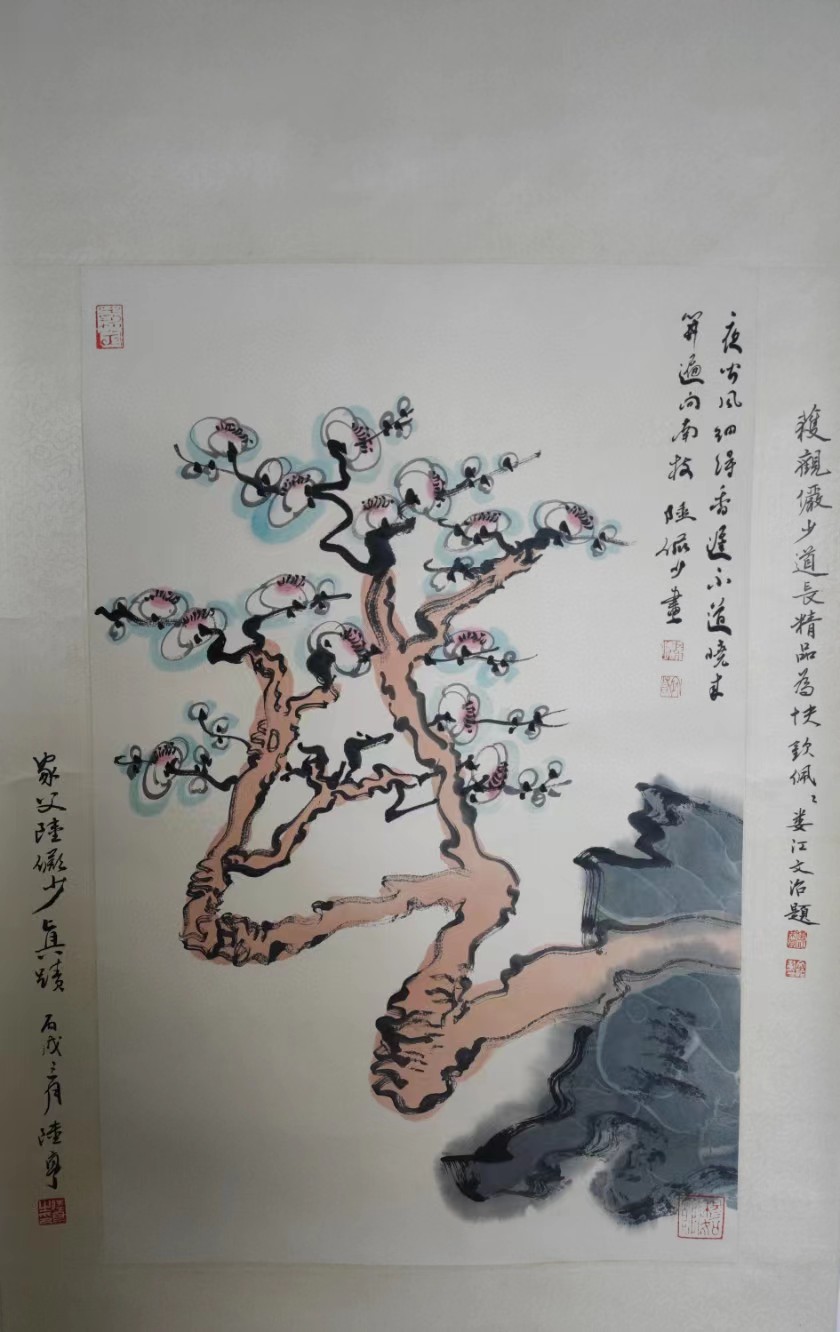 獲觀儼少道長精品為快欽佩〻婁江文治題
夜阑风细得香遲不道曉来
開遍向南枝 陸俨少畫
家父陸儼少真蹟 丙戌三月 陸亨